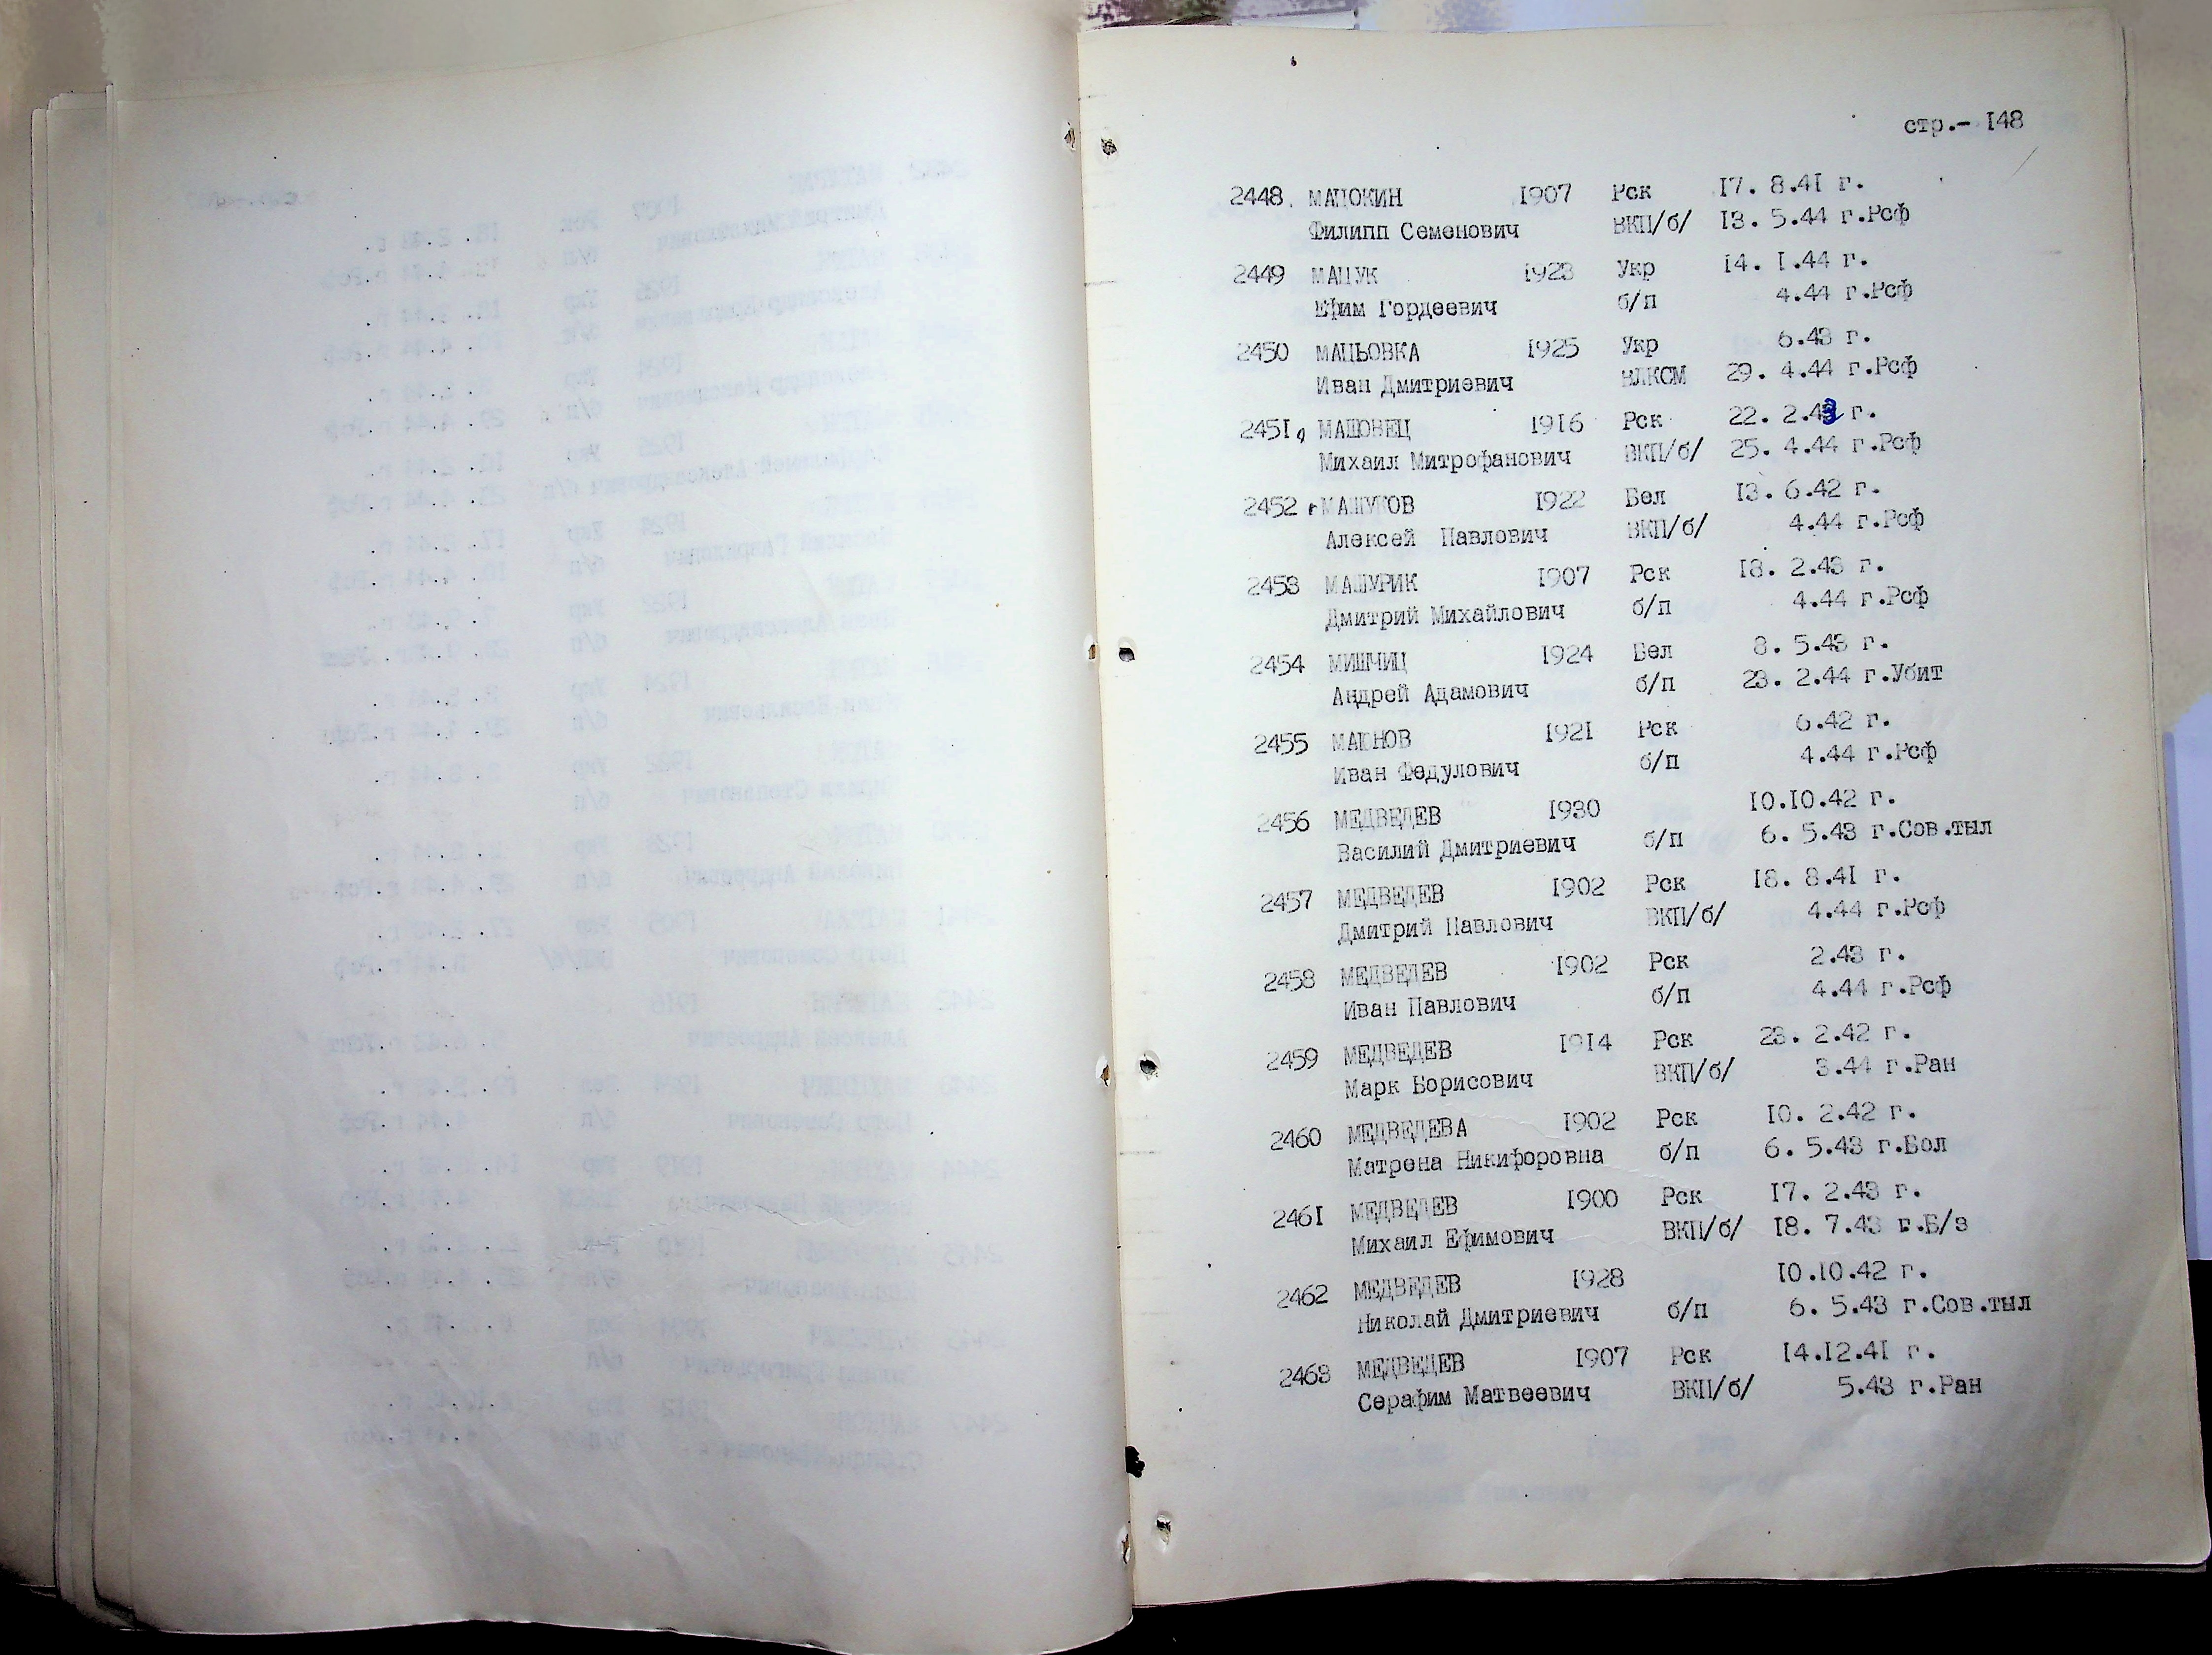 стр.- I48
2448. МАЦОКИН I907 Рск I7. 8.4I г.
Филипп Семенович ВКП/б/ I3. 5.44 г.Рсф
2449 МАЦУК I923 Укр I4. I.44 г.
Ефим Гордеевич б/п 4.44 г.Рсф
2450 МАЦЬОВКА I925 Укр 6.43 г.
Иван Дмитриевич ВЛКСМ 29. 4.44 г.Рсф
245I МАШОВЕЦ I9I6 Рск 22. 2.43 г.
Михаил Митрофанович ВКП/б/ 25. 4.44 г.Рсф
2452 МАШУКОВ I922 Бел I3. 6.42 г.
Алексей Павлович ВКП/б/ 4.44 г.Рсф
2453 МАШУРИК I907 Рск I8. 2.43 г.
Дмитрий Михайлович б/п 4.44 г.Рсф
2454 МИШЧИЦ I924 Бел 8. 5.43 г.
Андрей Адамович б/п 23. 2.44 г.Убит
2455 МАЮНОВ I92I Рск 6.42 г.
Иван Федулович б/п 4.44 г.Рсф
2456 МЕДВЕДЕВ I930 I0.I0.42 г.
Василий Дмитриевич б/п 6. 5.43 г.Сов.тыл
2457 МЕДВЕДЕВ I902 Рск I8. 8.4I г.
Дмитрий Павлович ВКП/б/ 4.44 г.Рсф
2458 МЕДВЕДЕВ I902 Рск 2.43 г.
Иван Павлович б/п 4.44 г.Рсф
2459 МЕДВЕДЕВ I9I4 Рск 23. 2.42 г.
Марк Борисович ВКП/б/ 3.44 г.Ран
2460 МЕДВЕДЕВА I902 Рск I0. 2.42 г.
Матрена Никифоровна б/п 6. 5.43 г.Бол
246I МЕДВЕДЕВ I900 Рск I7. 2.43 г.
Михаил Ефимович ВКП/б/ I8. 7.43 г.Б/з
2462 МЕДВЕДЕВ I928 I0.I0.42 г.
Николай Дмитриевич б/п 6. 5.43 г.Сов.тыл
2463 МЕДВЕДЕВ I907 Рск I4.I2.4I г.
Серафим Матвеевич ВКП/б/ 5.43 г.Ран